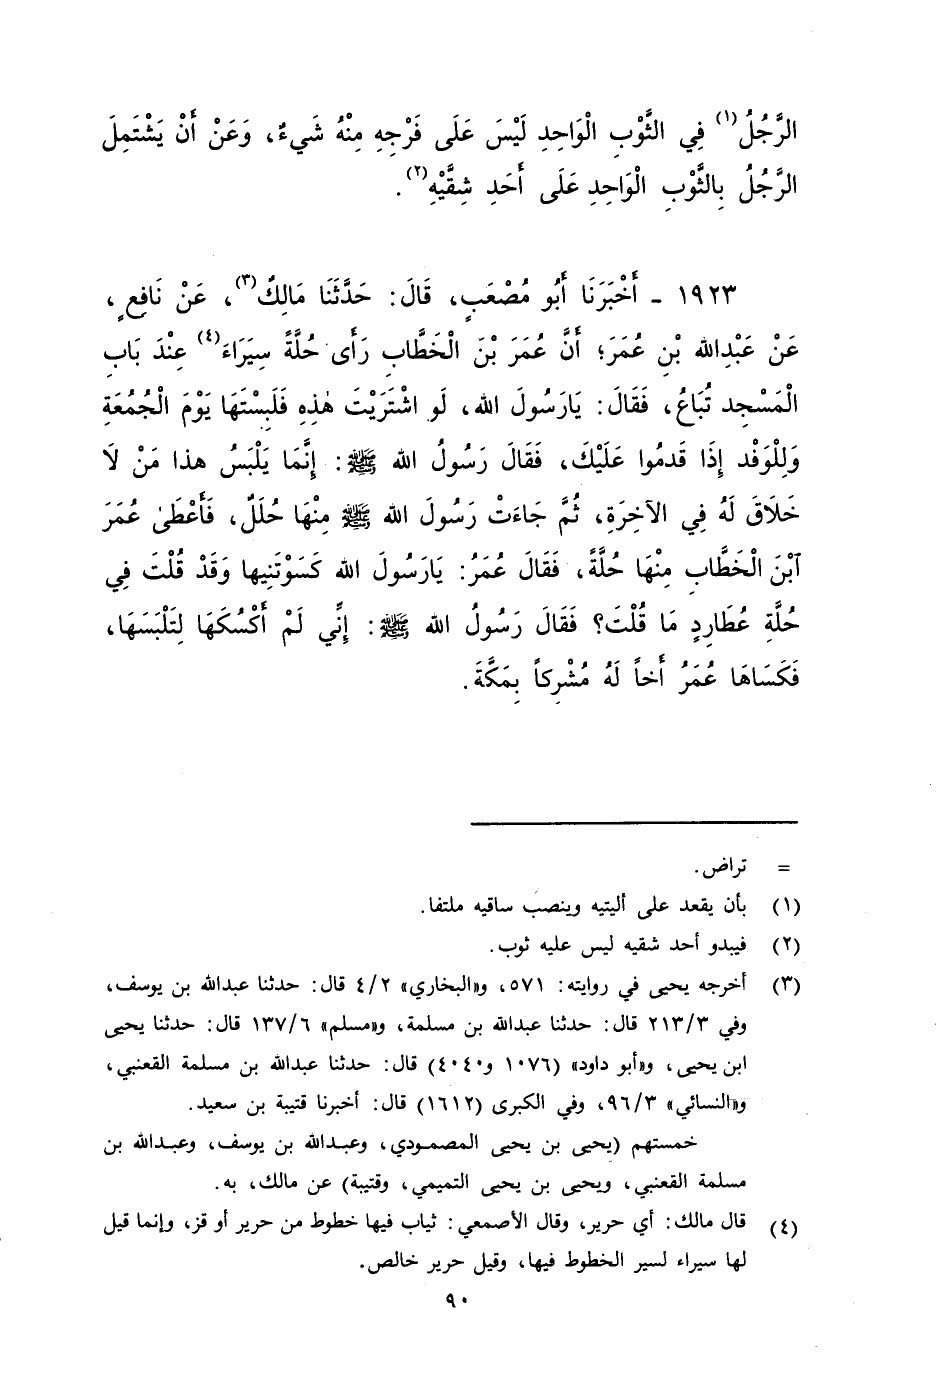 الرَّجُلُ(١) فِي الثَّوْبِ الْوَاحِدِ لَيْسَ عَلَى فَرْجِهِ مِنْهُ شَيءٌ، وَعَنْ أَنْ يَشْتَمِلَ
الرَّجُلُ بِالثَّوْبِ الْوَاحِدِ عَلَى أَحَدِ شِقَّيْهِ(٢).
١٩٢٣ - أَخْبَرَنَا أَبُو مُصْعَبٍ، قَالَ: حَدَّثَنَا مَالِكٌ(٣)، عَنْ نَافِعٍ،
عَنْ عَبْدِالله بْنِ عُمَرَ؛ أَنَّ عُمَرَ بْنَ الْخَطَّابِ رَأَى حُلَّةً سِيَرَاءَ(٤) عِنْدَ بَابِ
الْمَسْجِدِ تُبَاعُ، فَقَالَ: يَارَسُولَ الله، لَو اشْتَرَيْتَ هٰذِهِ فَلَبِسْتَهَا يَوْمَ الْجُمُعَةِ
وَلِلْوَفْدِ إِذَا قَدِمُوا عَلَيْكَ، فَقَالَ رَسُولُ الله ﷺ: إِنَّمَا يَلْبَسُ هذا مَنْ لَا
خَلَاقَ لَهُ فِي الآخِرَةِ، ثُمَّ جَاءَتْ رَسُولَ الله ﷺ مِنْهَا حُلَلٌ، فَأَعْطَىٰ عُمَرَ
ٱبْنَ الْخَطَّابِ مِنْهَا حُلَّةً، فَقَالَ عُمَرُ: يَارَسُولَ الله كَسَوْتَنِيها وَقَدْ قُلْتَ فِي
حُلَّةِ عُطَارِدٍ مَا قُلْتَ؟ فَقَالَ رَسُولُ الله ﷺ: إِنِّي لَمْ أَكْسُكَهَا لِتَلْبَسَهَا،
فَكَسَاهَا عُمَرُ أَخاً لَهُ مُشْرِكاً بِمَكَّةَ.
= تراض.
(١) بأن يقعد على أليتيه وينصب ساقيه ملتفا.
(٢) فيبدو أحد شقيه ليس عليه ثوب.
(٣) أخرجه يحيى في روايته: ٥٧١، و«البخاري» ٤/٢ قال: حدثنا عبدالله بن يوسف،
وفي ٢١٣/٣ قال: حدثنا عبدالله بن مسلمة، و«مسلم» ١٣٧/٦ قال: حدثنا يحيى
ابن يحيى، و«أبو داود» (١٠٧٦ و٤٠٤٠) قال: حدثنا عبدالله بن مسلمة القعنبي،
و«النسائي» ٩٦/٣، وفي الكبرى (١٦١٢) قال: أخبرنا قتيبة بن سعيد.
خمستهم (يحيى بن يحيى المصمودي، وعبدالله بن يوسف، وعبدالله بن
مسلمة القعنبي، ويحيى بن يحيى التميمي، وقتيبة) عن مالك، به.
(٤) قال مالك: أي حرير، وقال الأصمعي: ثياب فيها خطوط من حرير أو قز، وإنما قيل
لها سيراء لسير الخطوط فيها، وقيل حرير خالص.
٩٠